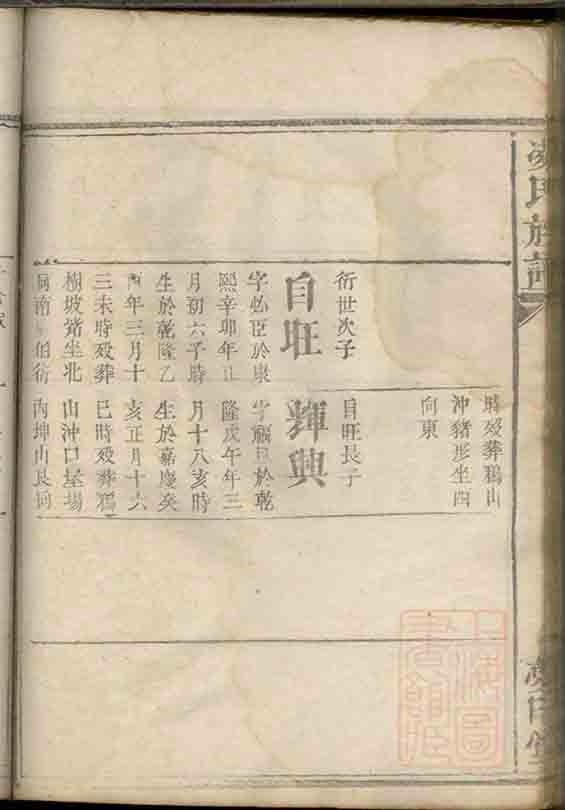 氏族譜
時歿葬鴉山
沖豬形坐西
向東
衍世次子
自旺
字必臣於康
熙辛卯年正
月初六子時
生於乾隆乙
酉年三月十
三未時歿葬
樹坡豬坐北
向南
伯衍
自旺長子
輝興
於乾
隆戊午年三
月十八亥時
生於嘉慶癸
亥正月十六
巳時歿葬鴉
山沖口屋場
內坤山艮向
上海圖
書館臧